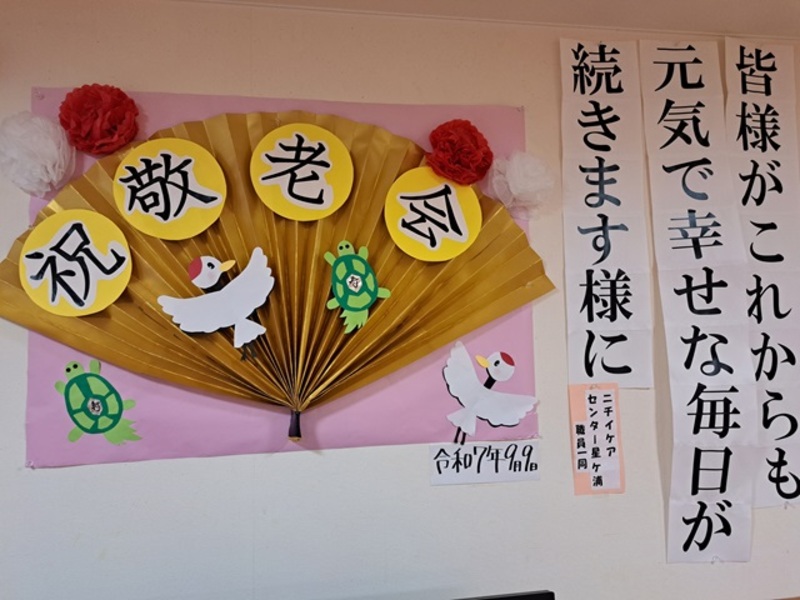 祝敬老会
令和7年9月9日
皆様がこれからも
元気で幸せな毎日が
続きます様に
ニチイケア
センター星ケ浦
職員一同